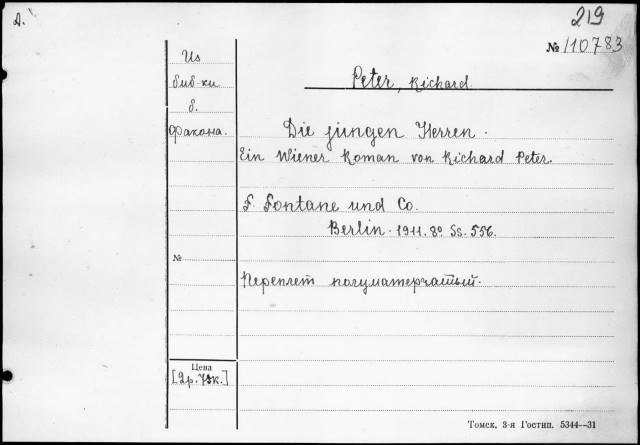 А.
219
№ 110783
Из
биб-ки
б.
Факона.
Peter, Richard.
Die jungen Herren.
Ein Wiener Roman von Richard Peter.
F. Fontane und Co.
Berlin. 1911. 8º. Ss. 556.
№
Переплет полуматерчатый.
Цена
[2р. 75к.]
Томск. 3-я Гостип. 5344—31